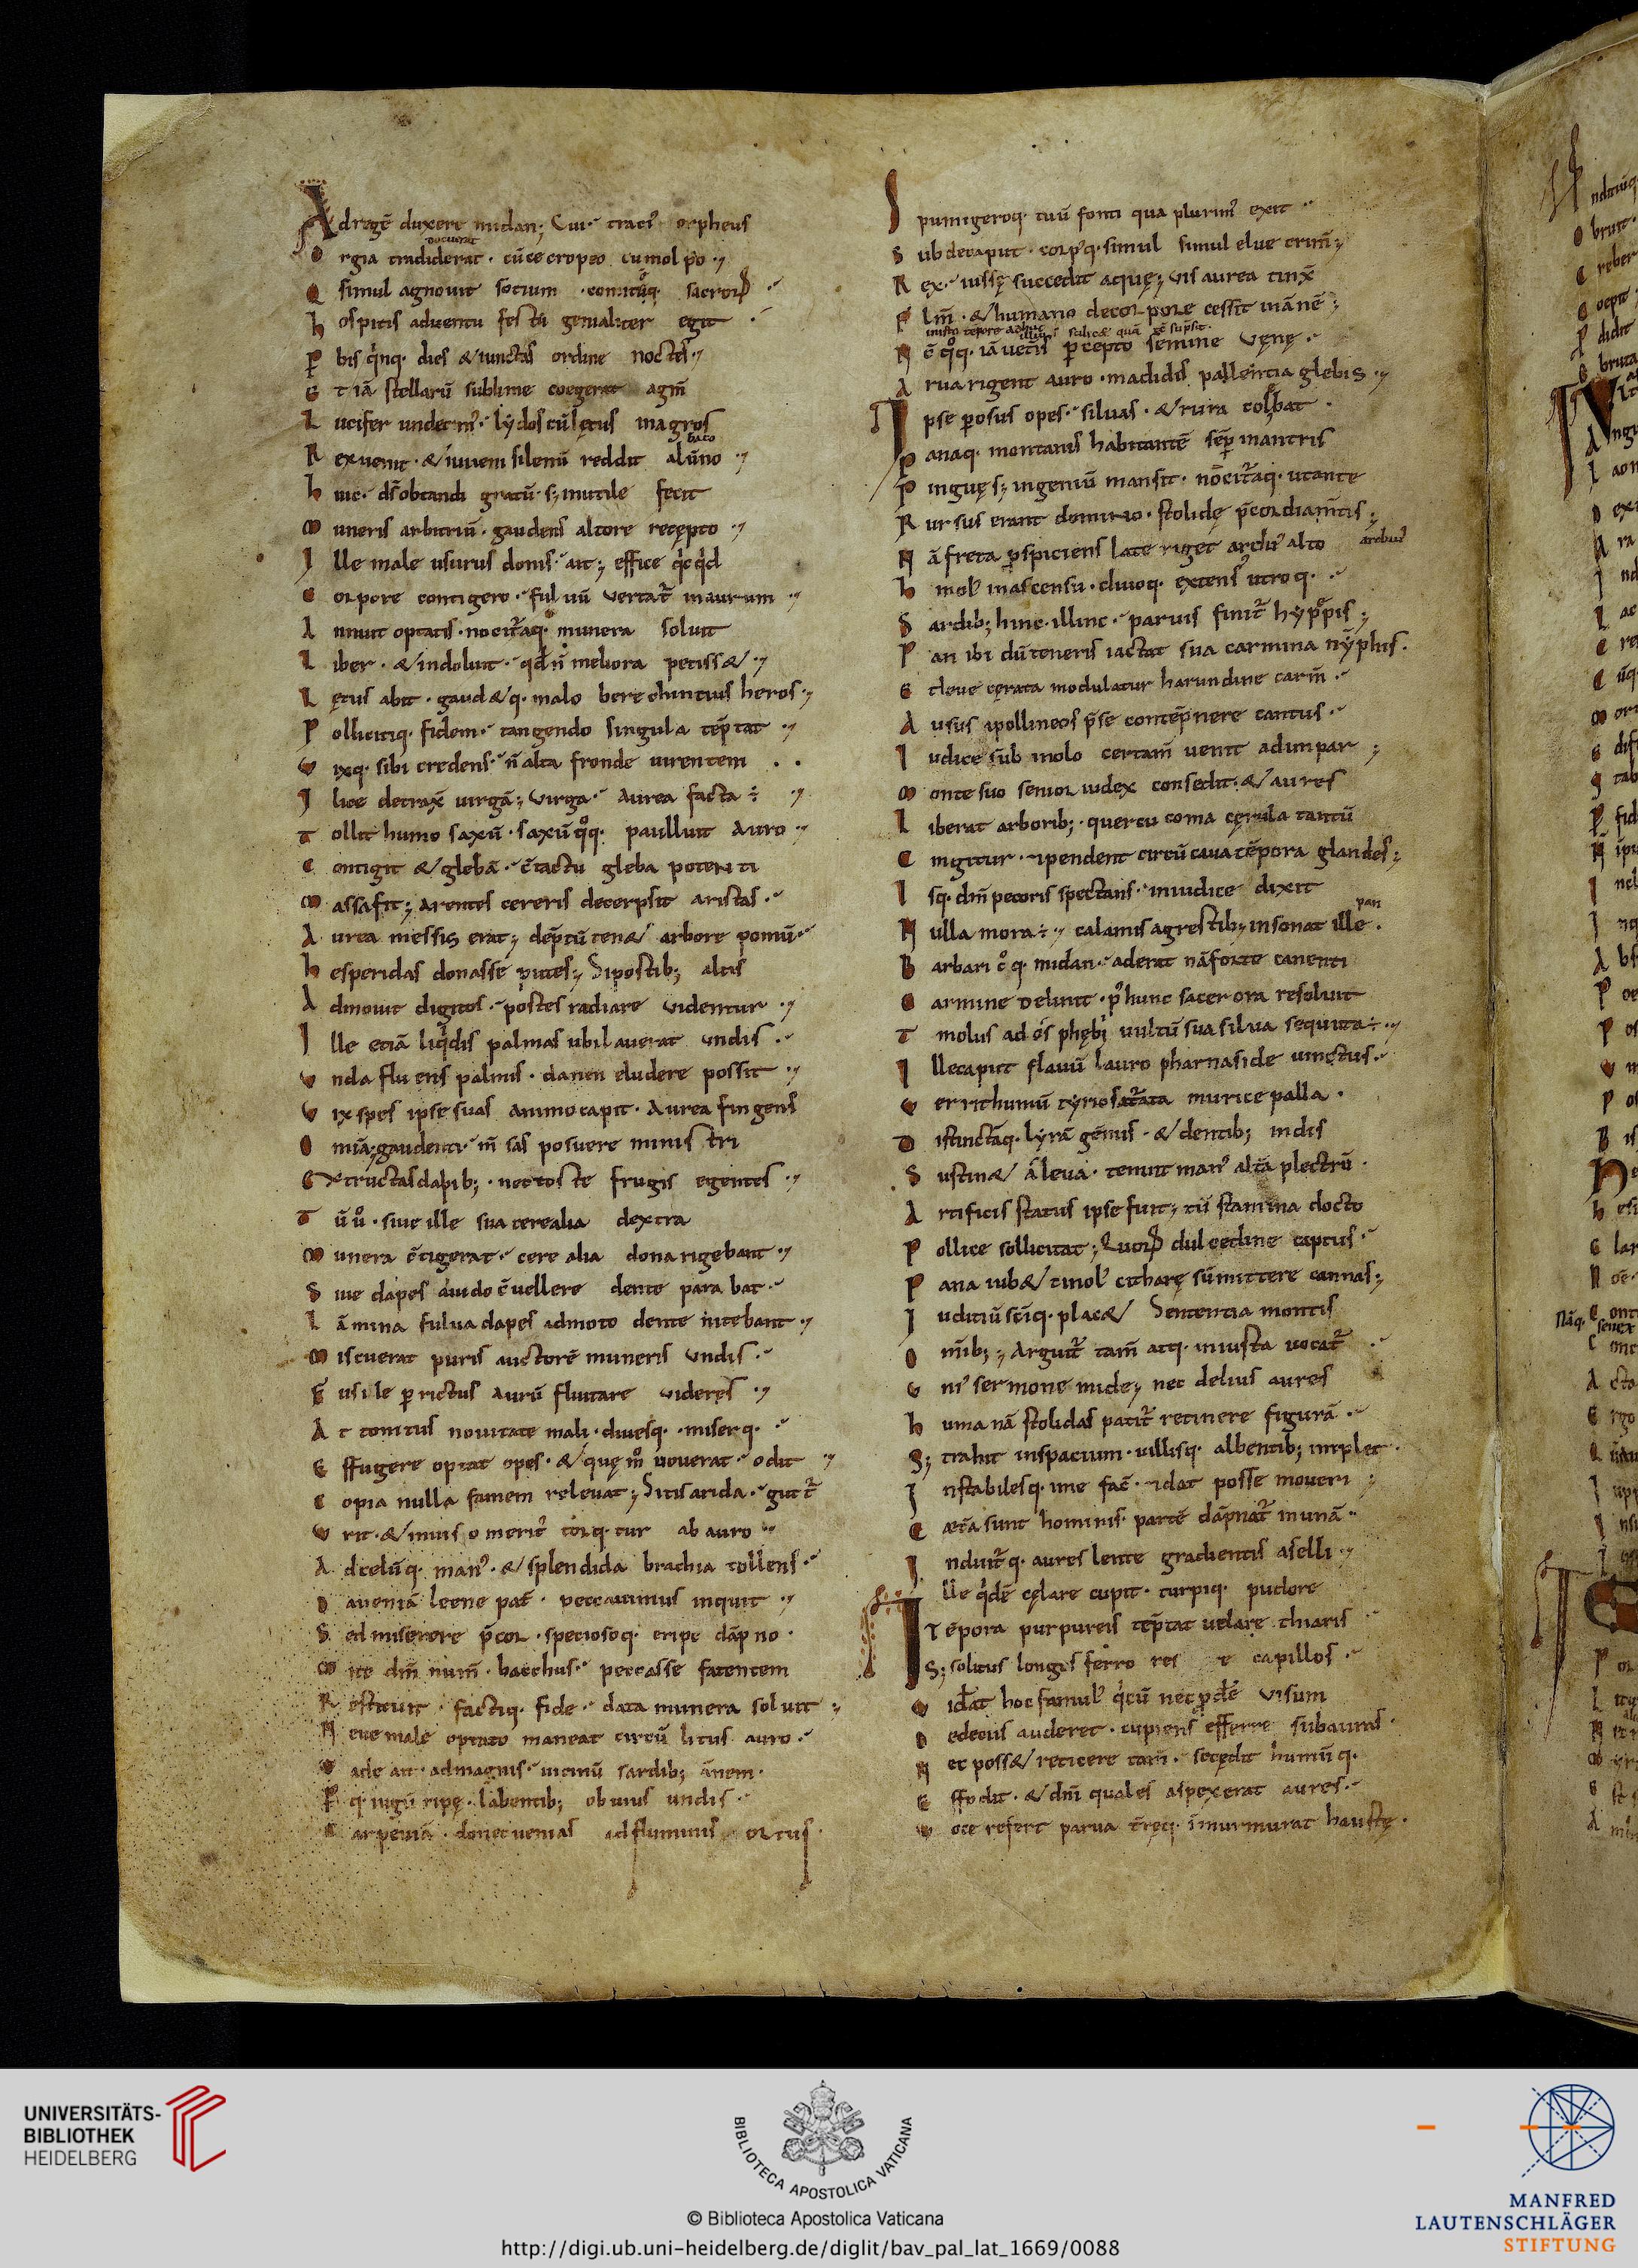 Adregē duxere midan; Cui traciꝰ orpheus
docuerat
Orgia tradiderat · cū cecropeo eumolpo
Q simul agnouit socium · comitūq · sacrorꝝ
hospitis aduentu festū genialiter egit
P bis q̇nq · dies & iunctas ordine noctes
Et iā stellarū sublime coegerat agm̄
Lucifer undecimꝰ · lydos cū lętus in agros
baco
Rex uenit · & iuueni silenū reddit alūno
huic · ds̄ obtandi gratū · s; inutile fecit
Muneris arbitriū · gaudens altore recepto
Ille male usurus donis · ait; effice q̇cq̇d
Corpore contigero · fuluū uertat̄ in aurum
Annuit optatis · nocit̄aq · munera soluit
Liber · & indoluit · qd n̄ meliora petiss&
Lętus abit · gaud&q · malo berechintius heros
Pollicitiq · fidem · tangendo singula tēptat
Vixq · sibi credens · n̄ alta fronde uirentem
Ilice detrax̄ uirgā; Virga · Aurea facta ÷
Tollit humo saxū · saxū qq̊ · palluit Auro
Contigit & glebā · c̄tactu gleba potenti
Massa fit; Arentes cereris decerpsit aristas
Aurea messis erat; dēptū ten& arbore pomū
hesperidas donasse putes; Si postib; altis
Admouit digitos · postes radiare uidentur
Ille etiā liq̇dis palmas ubi lauerat undis
Vnda fluens palmis · danen eludere possit
Vix spes ipse suas animo capit · Aurea fingens
Omīa; gaudenti · m̄sas posuere ministri
Extructas dapib; · nec toste frugis egentes
Tū uͦ · siue ille sua cerealia dextra
Munera c̄tigerat · cerealia dona rigebant
Siue dapes auido c̄uellere dente parabat
Lāmina fulua dapes admoto dente nitebant
Miscuerat puris auctorē muneris undis
Fusile p rictus Aurū fluitare uideres
Attonitus nouitate mali · diuesq · miserq
Effugere optat opes · & quę mͦ uouerat · odit
Copia nulla famem releuat; Sitis arida · gutt̄
Vrit · & inuiso meritꝰ torq · tur ab auro
Ad celūq · manꝰ · & splendida brachia tollens
Da ueniā leene pat̄ · peccauimus inquit
Sed miserere p̄cor · speciosoq · eripe dāpno
Mite dm̄ num̄ · bacchus · peccasse fatentem
Restituit · factiq · fide · data munera soluit
Neue male optato maneat circū litus auro
Vade ait · ad magnis · uicinū sardib; ānem
Pq · iugū ripę · labentib; obuius undis
Carpe uiā · donec uenias ad fluminis ortus
Spumigeroq · tuū fonti qua plurimꝰ exit
Sub de caput · corpꝰq · simul simul elue crim̄
Rex · iussę succedit aquę; Vis aurea tinx̄
Flm̄ · & humano de corpore cessit in ānē
Nc̄ qq̊ · iā uet̄is pcepto semine uęnę
Arua rigent auro · madidis pallentia glebis
Ipse perosus opes · siluas · & rura colebat
Panaq · montanis habitantē sēp in antris
Pingue s; ingeniū mansit · nocit̄aq · ut ante
Rursus erant domino · stolidę p̄cordia m̄tis
Nā freta pspiciens late riget arduꝰ alto
arduꝰ
Tmolꝰ in ascensu · cliuoq · extensꝰ utroq
Sardib; hinc · illinc · paruis finit̄ hyppis
Pan ibi dū teneris iactat sua carmina nȳphis
Et leue cerata modulatur harundine carm̄
Ausus apollineos p̄se contēpnere cantus
Iudice sub molo certam̄ uenit ad impar
Monte suo senior iudex consedit · & aures
Liberat arborib; · quercu coma cęrula tantū
Cingitur · ⁊ pendent circū caua tēpora glandes
Isq · dm̄ pecoris spectans · in iudice dixit
pan
Nulla mora ÷ calamis agrestib; insonat ille
Barbaricͦq · midan · aderat nā forte canenti
Carmine delinit · pꝰ hunc sacer ora resoluit
Tmolus ad os phębi uultū sua silua secuta ÷
Ille caput flauū lauro pharnaside uinctus
Verrit humū tyrio sat̄ata murice palla
Distinctāq · lyrā gēmis · & dentib; indis
Sustin& a leua · tenuit manꝰ alt̄a plectrū
Artificis status ipse fuit; tū stamina docto
Pollice sollicitat; Quorꝝ dulcedine captus
Pana iub& tmolꝰ citharę sūmittere cannas
Iuditiū sc̄iq · plac& Sententia montis
Omīb; Arguit̄ tam̄ atq · iniusta uocat̄
Vniꝰ sermone mide; nec delius aures
humanā stolidas patit̄ retinere figurā
S; trahit in spacium · uillisq · albentib; implet
Instabilesq · ime fac̄ · ⁊ dat posse moueri
Cæt̄a sunt hominis · partē dāpnat̄ in unā
Induit̄q · aures lente gradientis aselli
Ille q̇dē cęlare cupit · turpiq · pudore
Tēpora purpureis tēptat uelare thiaris
S; solitus longos ferro res e capillos
Vid̄at hoc famulꝰ q̇ cū nec pd̄e uisum
Dedecus auderet · cupiens efferre sub auras
Nec poss& reticere tam̄ · secędit humūq
Effodit · & dn̄i quales aspexerat aures
Voce refert parua t̄ręq · īmurmurat haustę
UNIVERSITÄTS-
BIBLIOTHEK
HEIDELBERG
BIBLIOTECA APOSTOLICA VATICANA
© Biblioteca Apostolica Vaticana
http://digi.ub.uni-heidelberg.de/diglit/bav_pal_lat_1669/0088
MANFRED
LAUTENSCHLÄGER
STIFTUNG